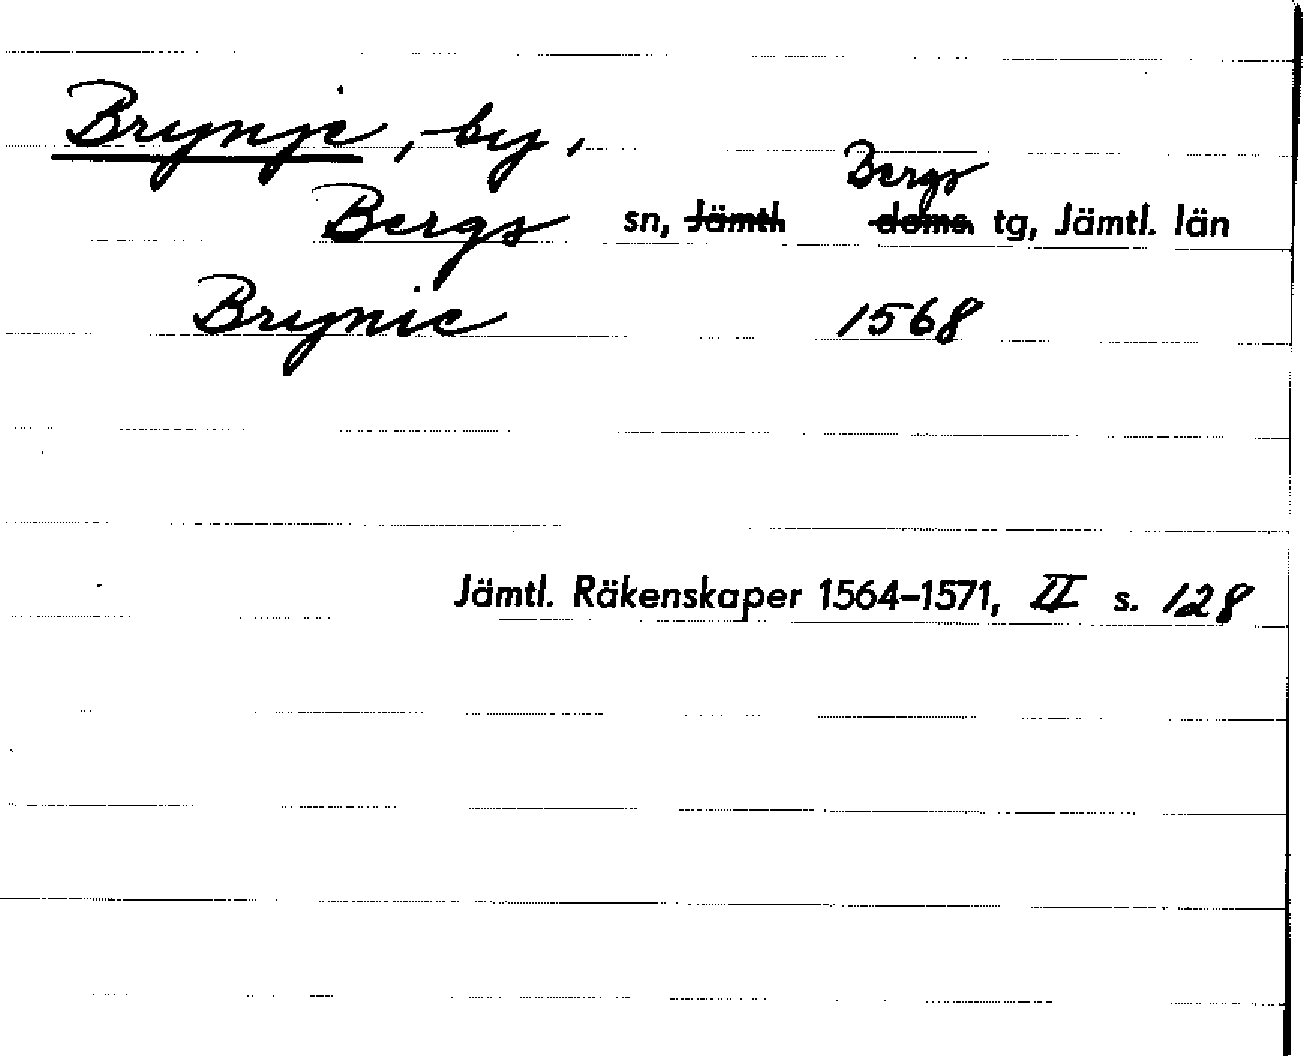 Brynje, by,
Bergs
Bergs sn, Jämtl. doms. tg, Jämtl. län
Brynie 1568
Jämtl. Räkenskaper 1564–1571, II s. 128